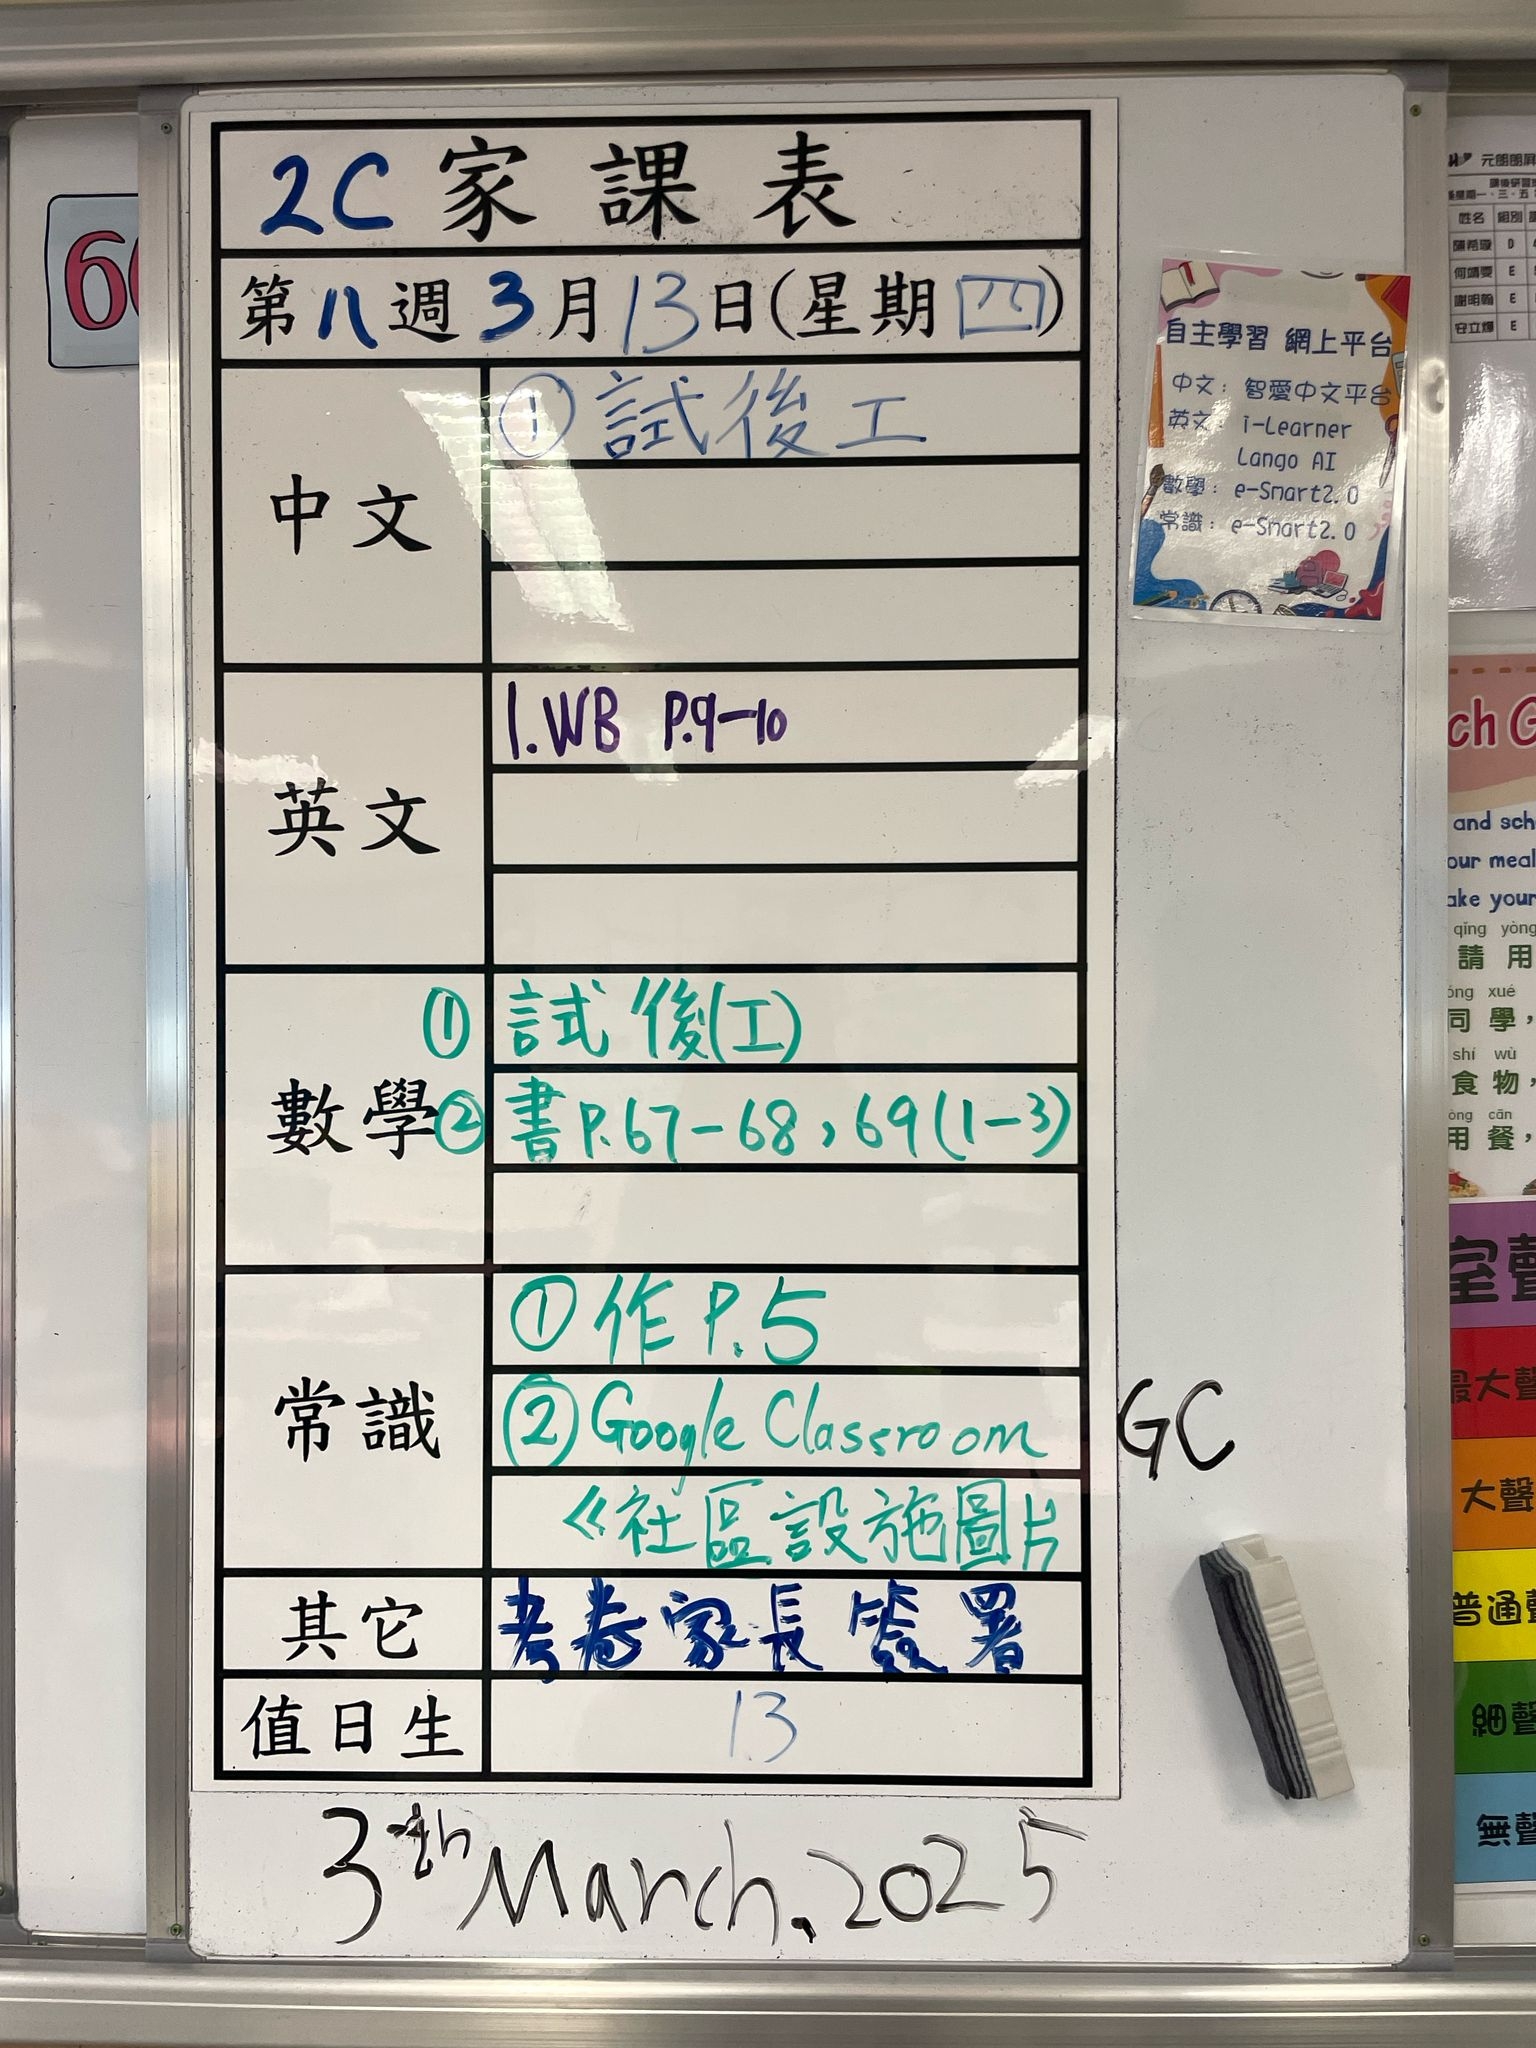 2C 家課表
第八週3月13日(星期四)
中文
① 試後工
英文
1. WB P.9-10
數學
① 試後(工)
② 書P.67-68，69(1-3)
常識
① 作P.5
② Google Classroom
《社區設施圖片
GC
其它
考卷家長簽署
值日生
13
3th March. 2025
自主學習 網上平台
中文：智愛中文平台
英文：i-Learner
Lango AI
數學：e-Smart2.0
常識：e-Smart2.0
6
元朗朗屏
姓名 組別
D
E
謝明翰 E
安立煇 E
ch G
and sch
our meal
ake your
qǐng yòng
請用
óng xué
同學，
shí wù
食物，
òng cān
用餐，
室聲
最大聲
大聲
普通聲
細聲
無聲